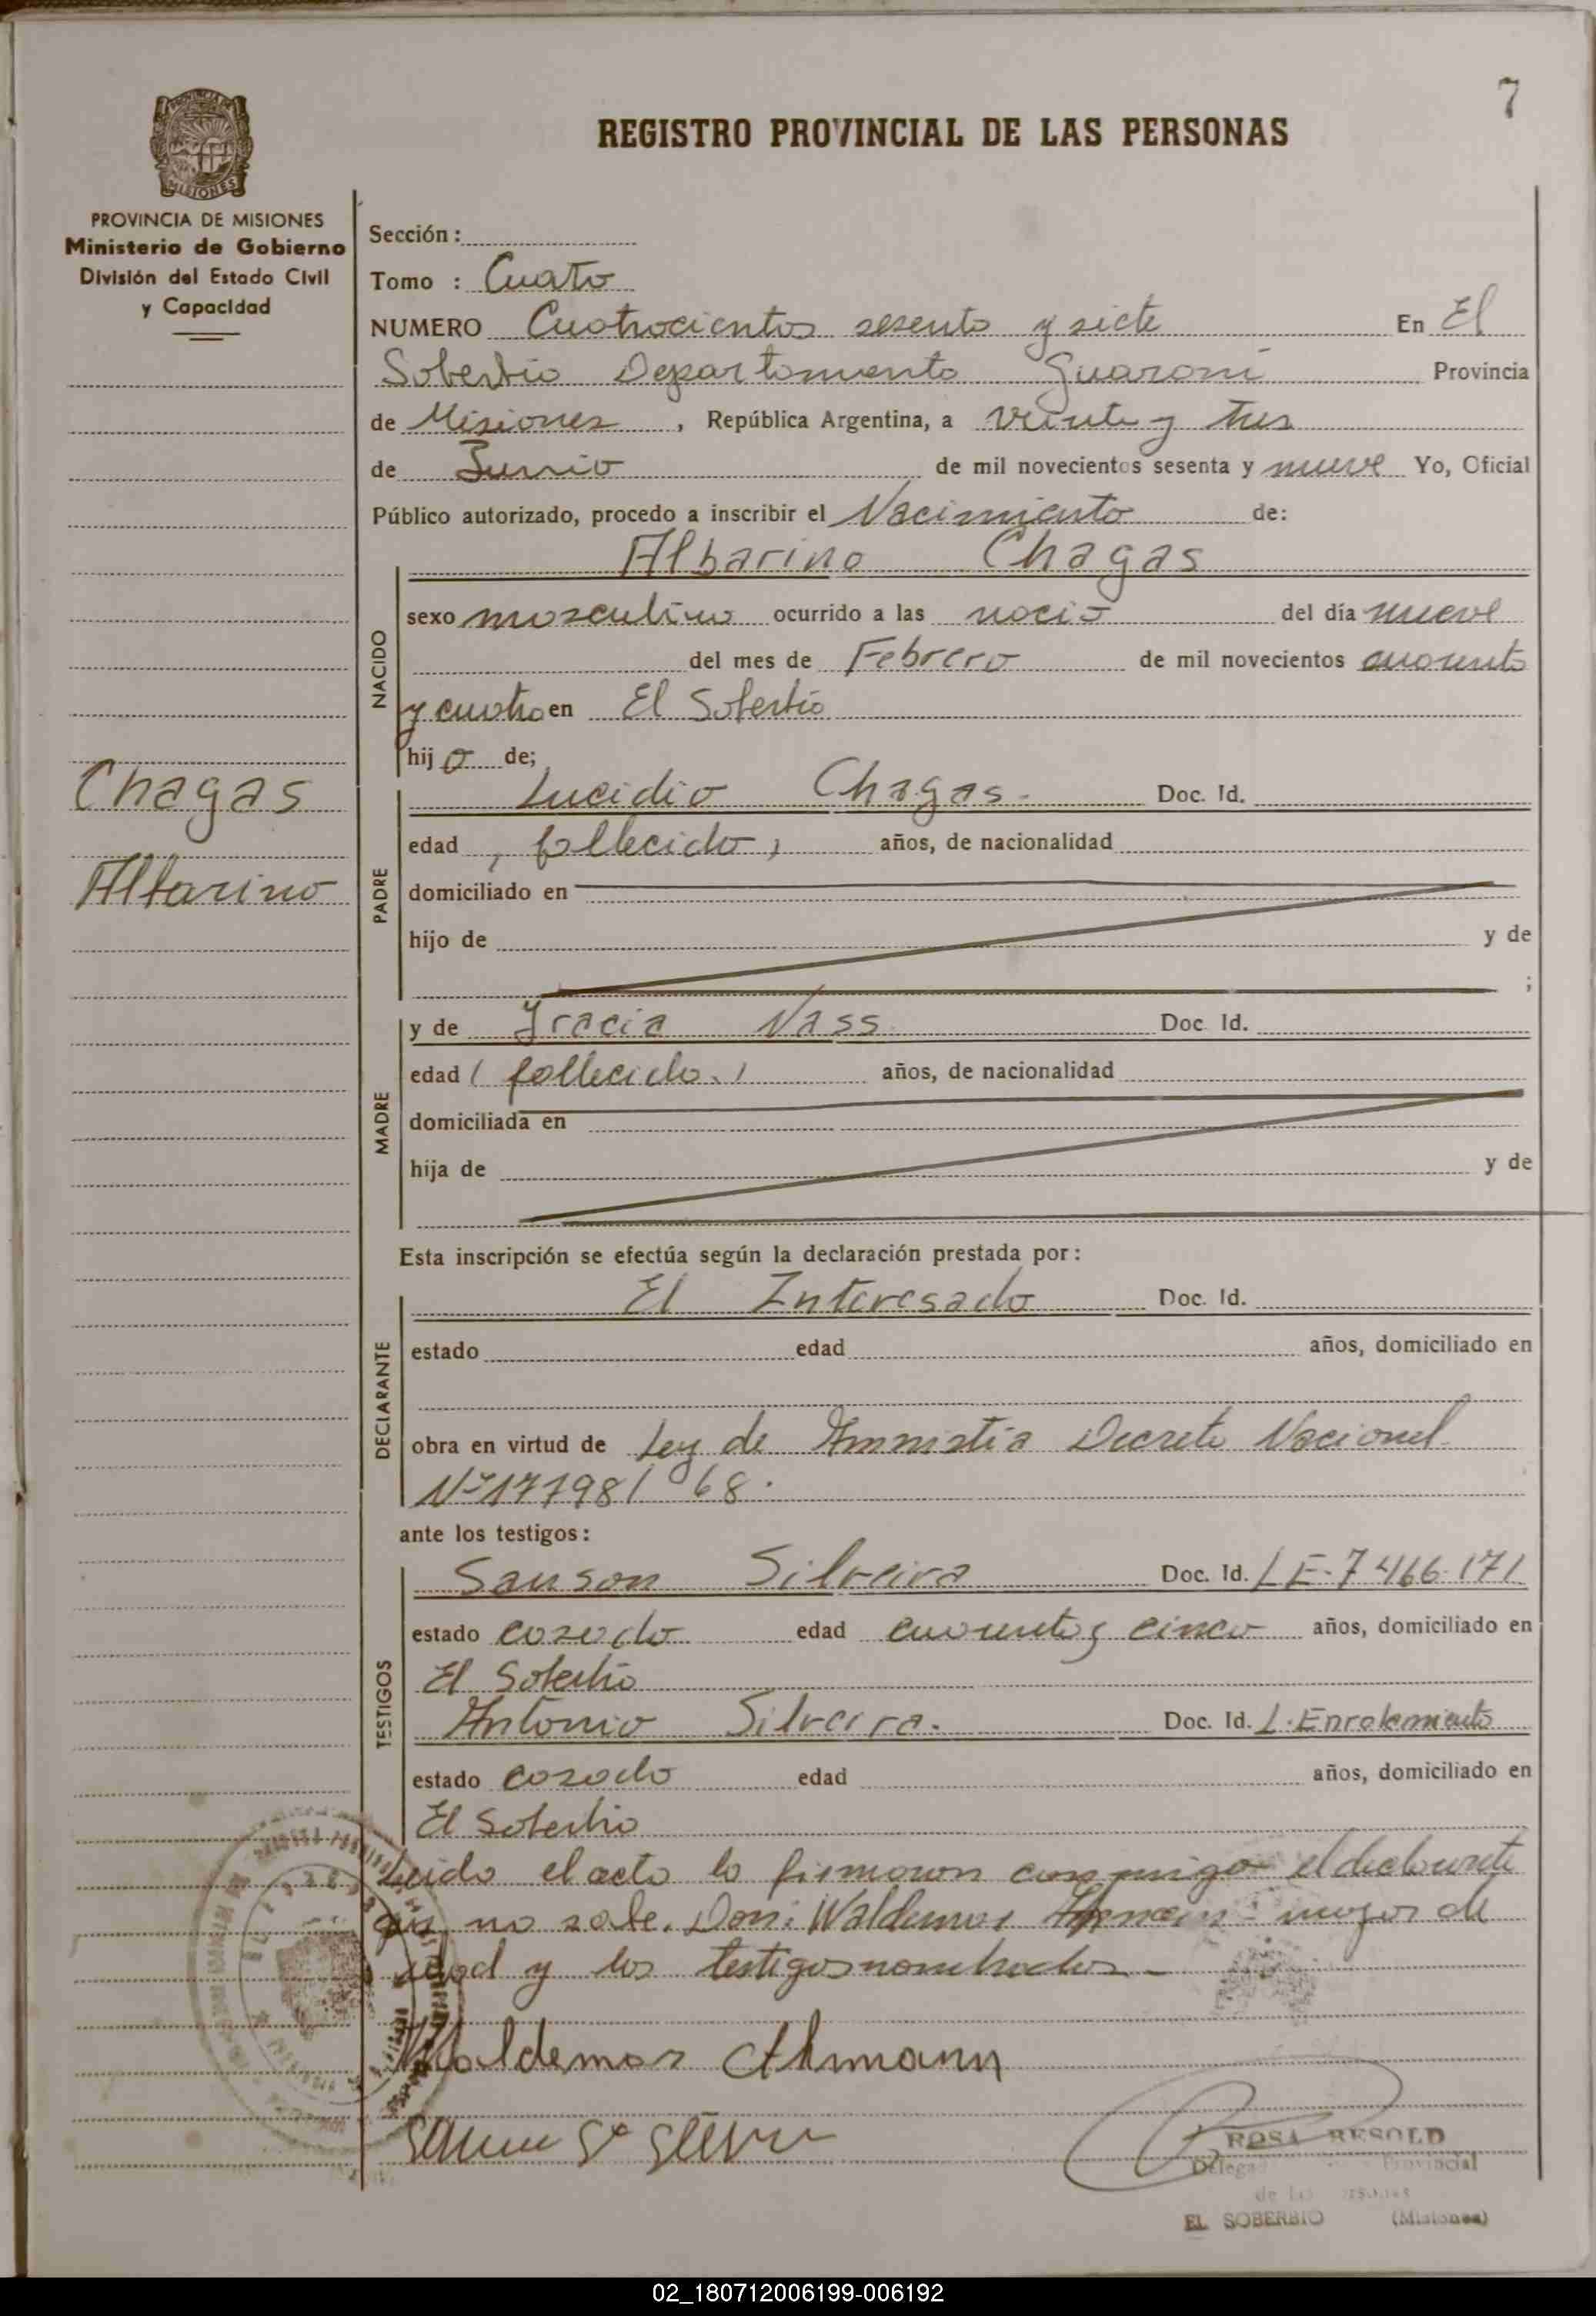 7
REGISTRO PROVINCIAL DE LAS PERSONAS
MISIONES
PROVINCIA DE MISIONES
Ministerio de Gobierno
División del Estado Civil
y Capacidad
Sección :
Tomo : Cuato
NUMERO Cuatrocientos sesenta y siete En El
Soberbio Departamento Guarani Provincia
de Misiones , República Argentina, a veinte y tres
de Junio de mil novecientos sesenta y nueve Yo, Oficial
Público autorizado, procedo a inscribir el Nacimiento de:
Albarino Chagas
NACIDO
sexo masculino ocurrido a las nació del día nueve
del mes de Febrero de mil novecientos cuarenta
y cuatro en El Soberbio
hijo de;
Chagas
Albarino
PADRE
Lucidio Chagas. Doc. Id.
edad , fallecido, años, de nacionalidad
domiciliado en
hijo de y de
;
MADRE
y de Gracia Nass Doc. Id.
edad ( fallecida.) años, de nacionalidad
domiciliada en
hija de y de
Esta inscripción se efectúa según la declaración prestada por :
DECLARANTE
El Interesado Doc. Id.
estado edad años, domiciliado en
obra en virtud de Ley de Amnistia Decreto Nacional
Nº 17798/ 68.
ante los testigos :
TESTIGOS
Sanson Silveira Doc. Id. LE-7466171
estado casado edad cuarenta y cinco años, domiciliado en
El Soberbio
Antonio Silveira. Doc. Id. L. Enrolamiento
estado casado edad años, domiciliado en
El Soberbio
Leido el acta lo firmaron conmigo el declarante
que no sabe. Don: Waldemar mayor de
edad y los testigos nombrados.-
Waldemar Ahmann
ROSA RESOLD
Provincial
EL SOBERBIO (Misiones)
02_180712006199-006192